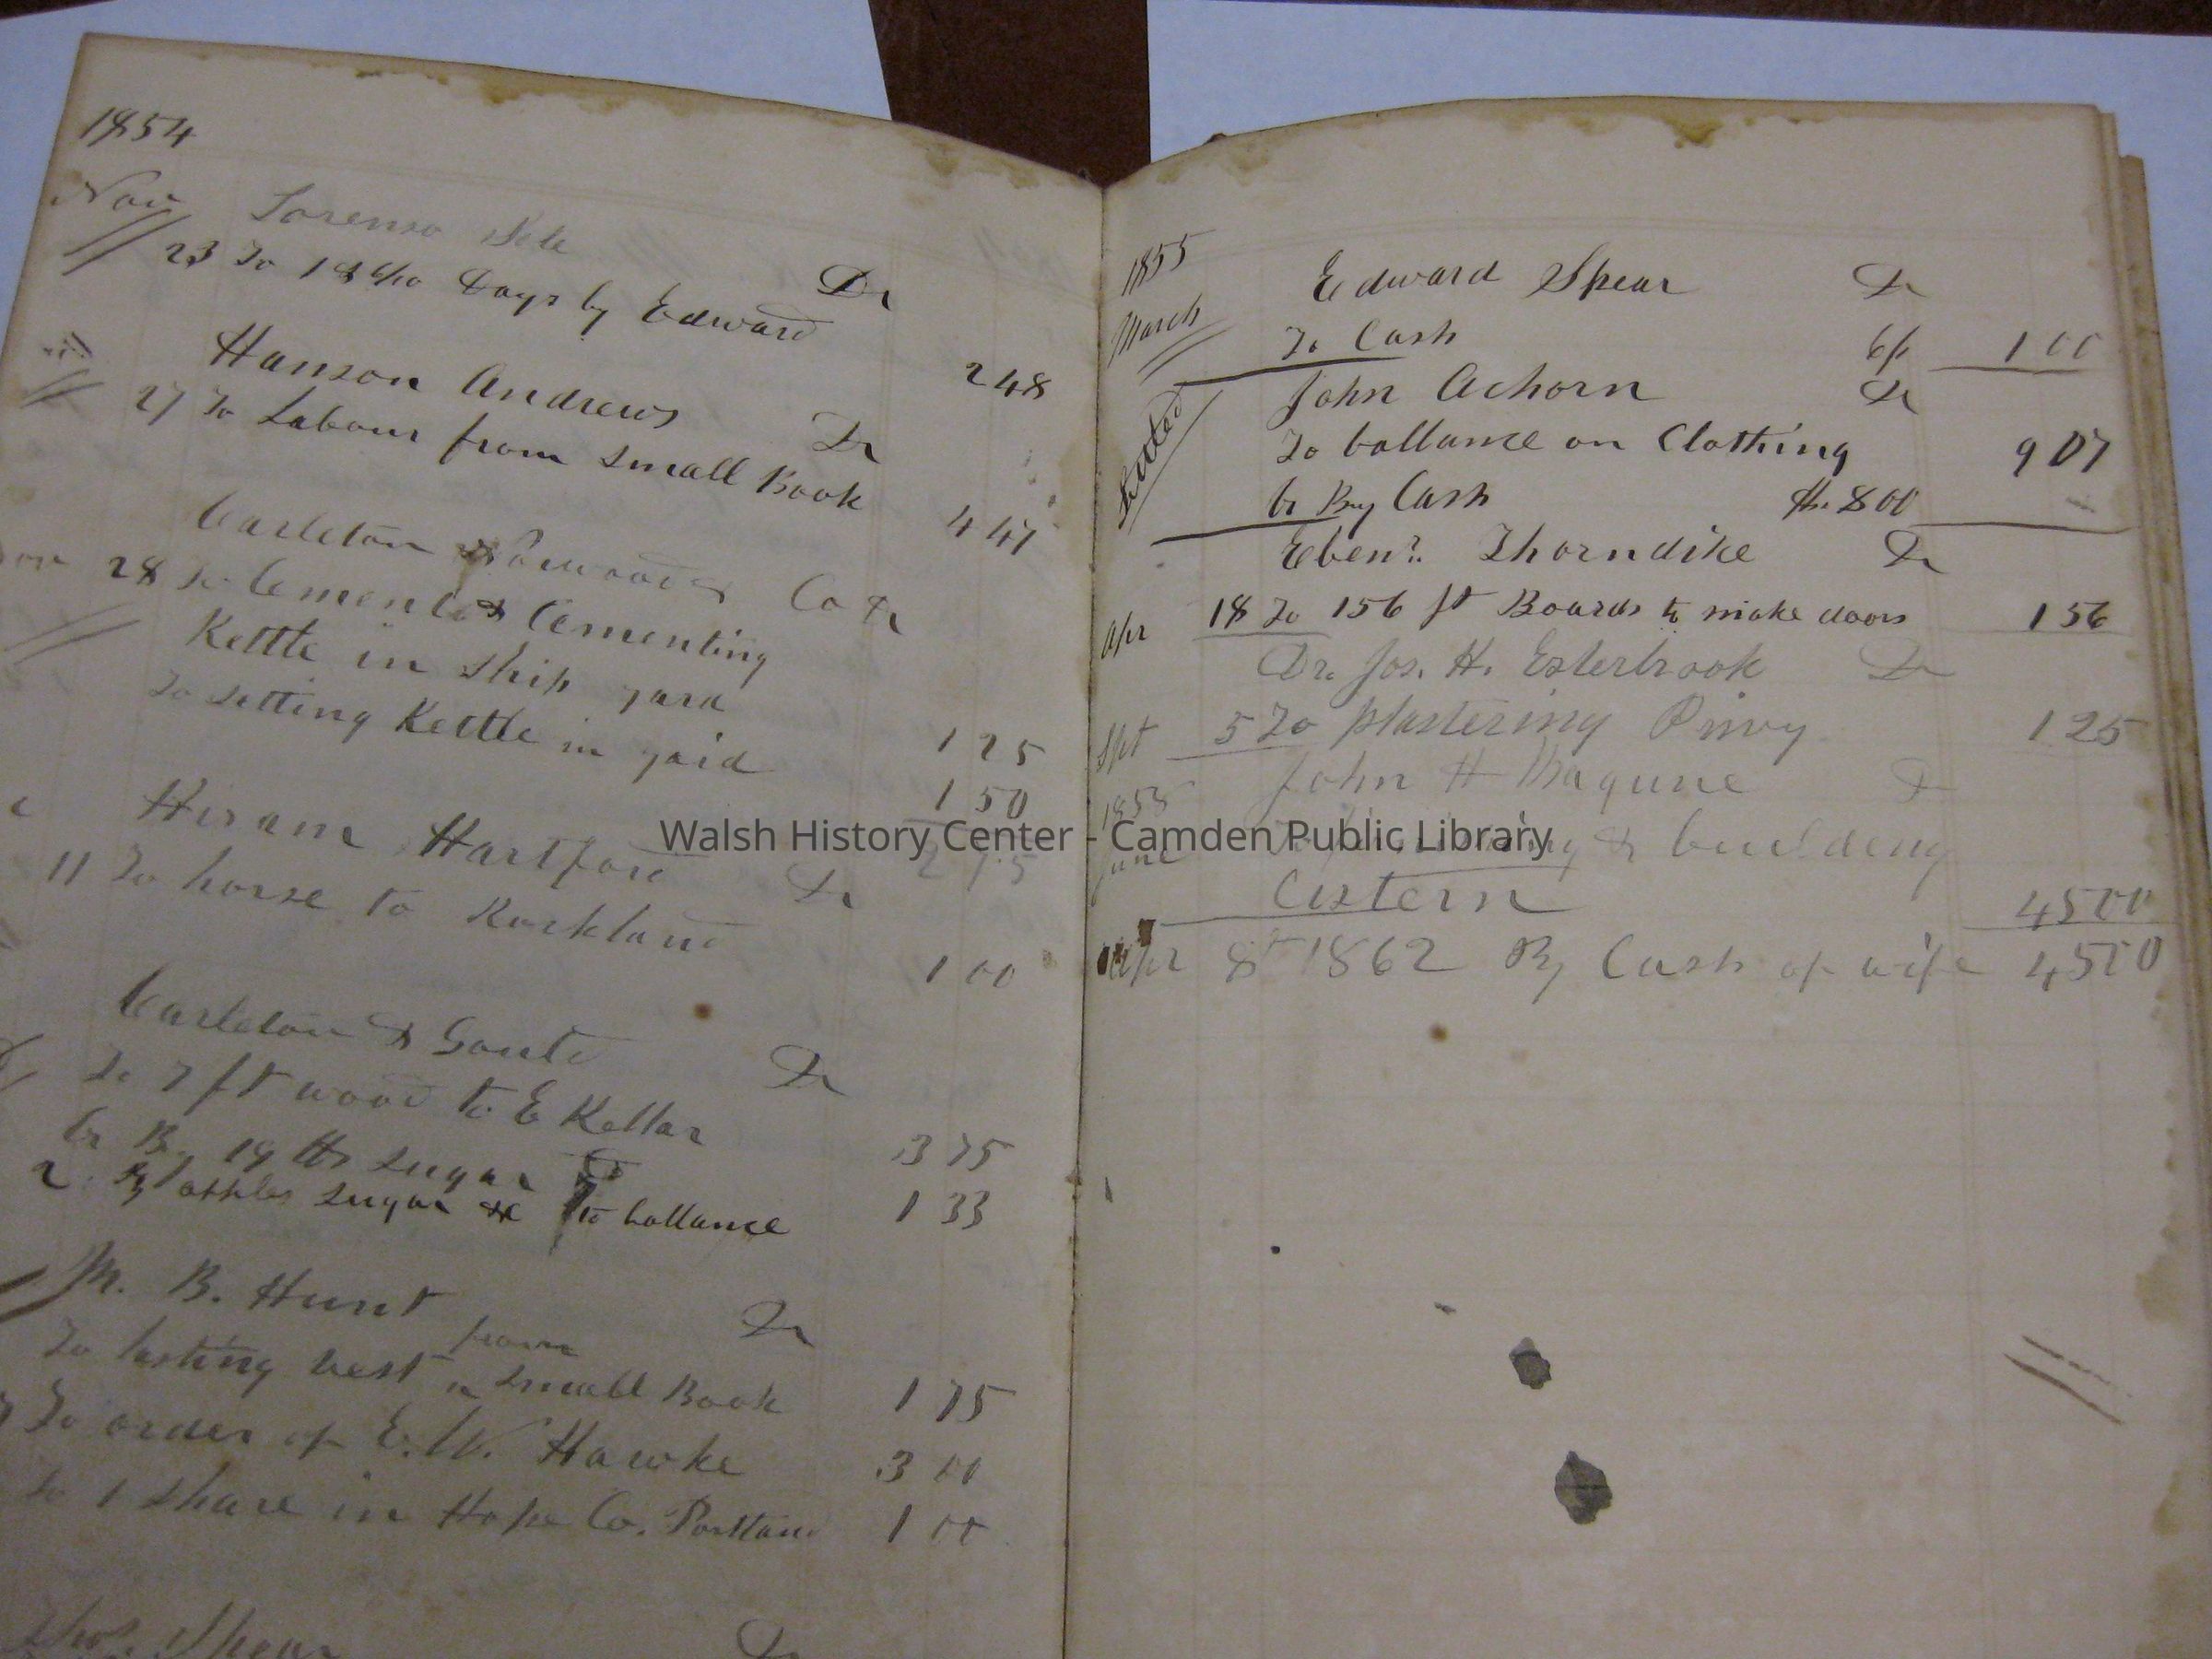 1854
Nov Lorenzo
23 To 18 6/10 Days by Edward Dr 2 48
Hanson Andrews Dr
27 To Labour from Small Book 4 47
Carleton & Norwood & Co Dr
28 To Cement & Cementing
Kettle in Ship yard 1 25
To Setting Kettle in yaid 1 50
2 75
Hiram Hartford Dr
11 To horse to Rockland 1 00
Carleton & Gould Dr
To 7 ft wood to E Kellar 3 75
Cr By 19 lbs sugar 1 33
2 By apples sugar &c to ballance
M. B. Hunt Dr
To lasting vest from Small Book 1 75
To order of E. W. Hawke 3 00
To 1 Share in Hope Co. Portland 1 00
Spear Dr
1855
March Edward Spear Dr
To Cash 6/ 1 00
Settled John Achorn Dr
To ballance on Clothing 9 07
Cr By Cash 8 00
Ebenr. Thorndike Dr
Apr 18 To 156 ft Boards to make doors 1 56
Dr. Jos. H. Esterbrook Dr
Spt 5 To plastering Privy 1 25
John H Magune Dr
1858
June & building
Cistern 45 00
Apr 8th 1862 By Cash of wife 45 00
Walsh History Center - Camden Public Library